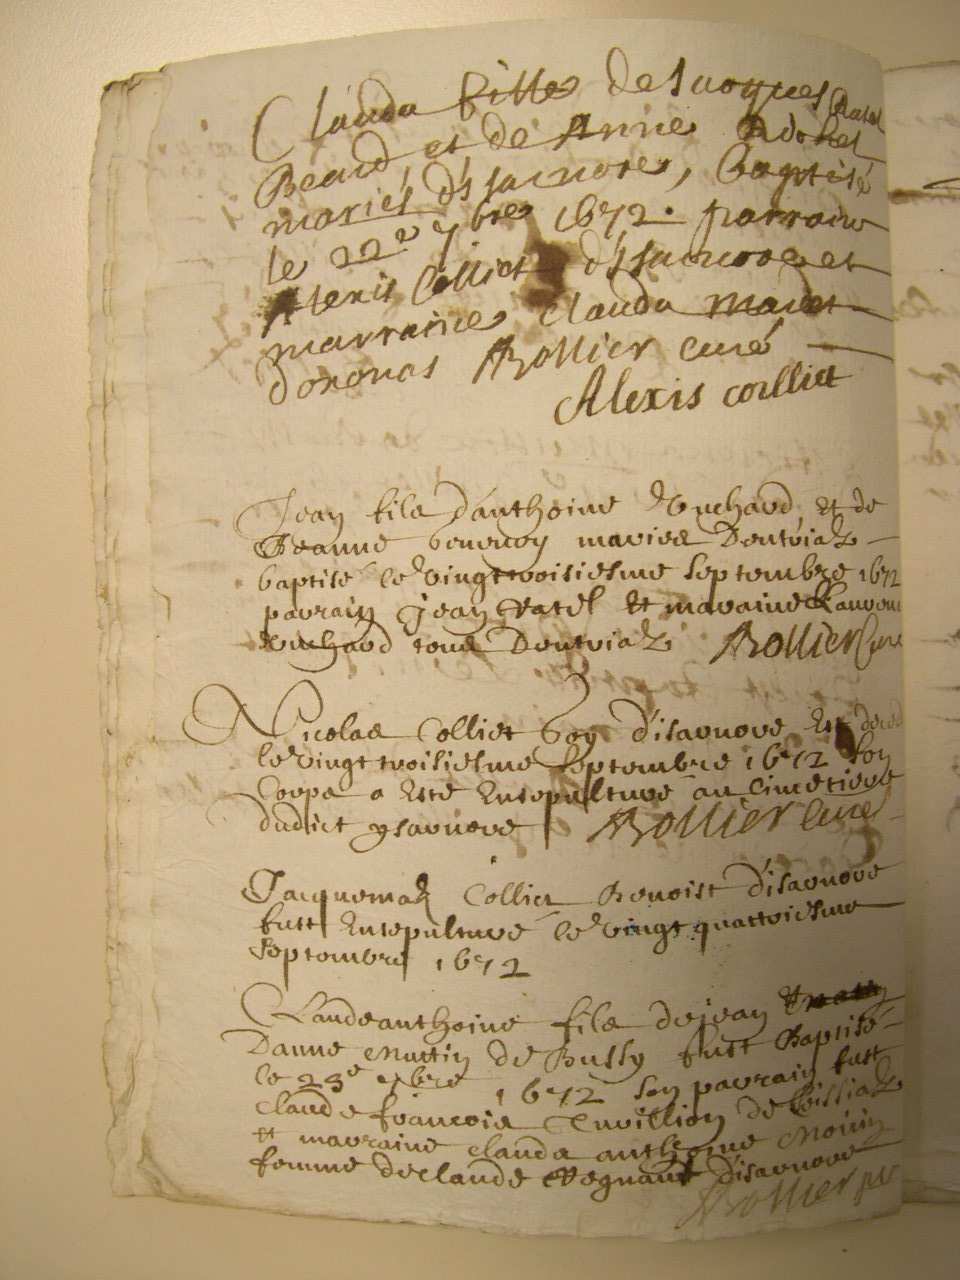 Clauda fille de Jacques Ratel
Beaud, et de Anne
mariés d'Isarnore, baptisé
le 22e 7bre 1672. parrain
Alexis Colliet d'Isarnore et
marraine Clauda
dononas ABollier curé
Alexis Colliet
Jean fils d'Anthoine Bouchard, et de
Jeanne mariés Dortviaz
baptisé le vingttroisiesme septembre 1672
parrain Jean Ratel et maraine
Bouchard tous Dortviaz ABollier Curé
Nicolas Colliet Goy d'isarnore Est deced
le vingt troisiesme septembre 1672 son
Corps a Esté Ensepulturé au Cimetiere
dudict ysarnore ABollier Curé
Jacquemaz Colliet Benoist d'isarnore
futt Ensepulturé le vingt quattriesme
septembre 1672
Claude anthoine fils de Jean Et
Danne Muttin de Bussy futt Baptisé
le 23e 1672 son parrain futt
Claude françois de
et marraine Clauda anthoine
femme de Claude d'isarnore
ABollier